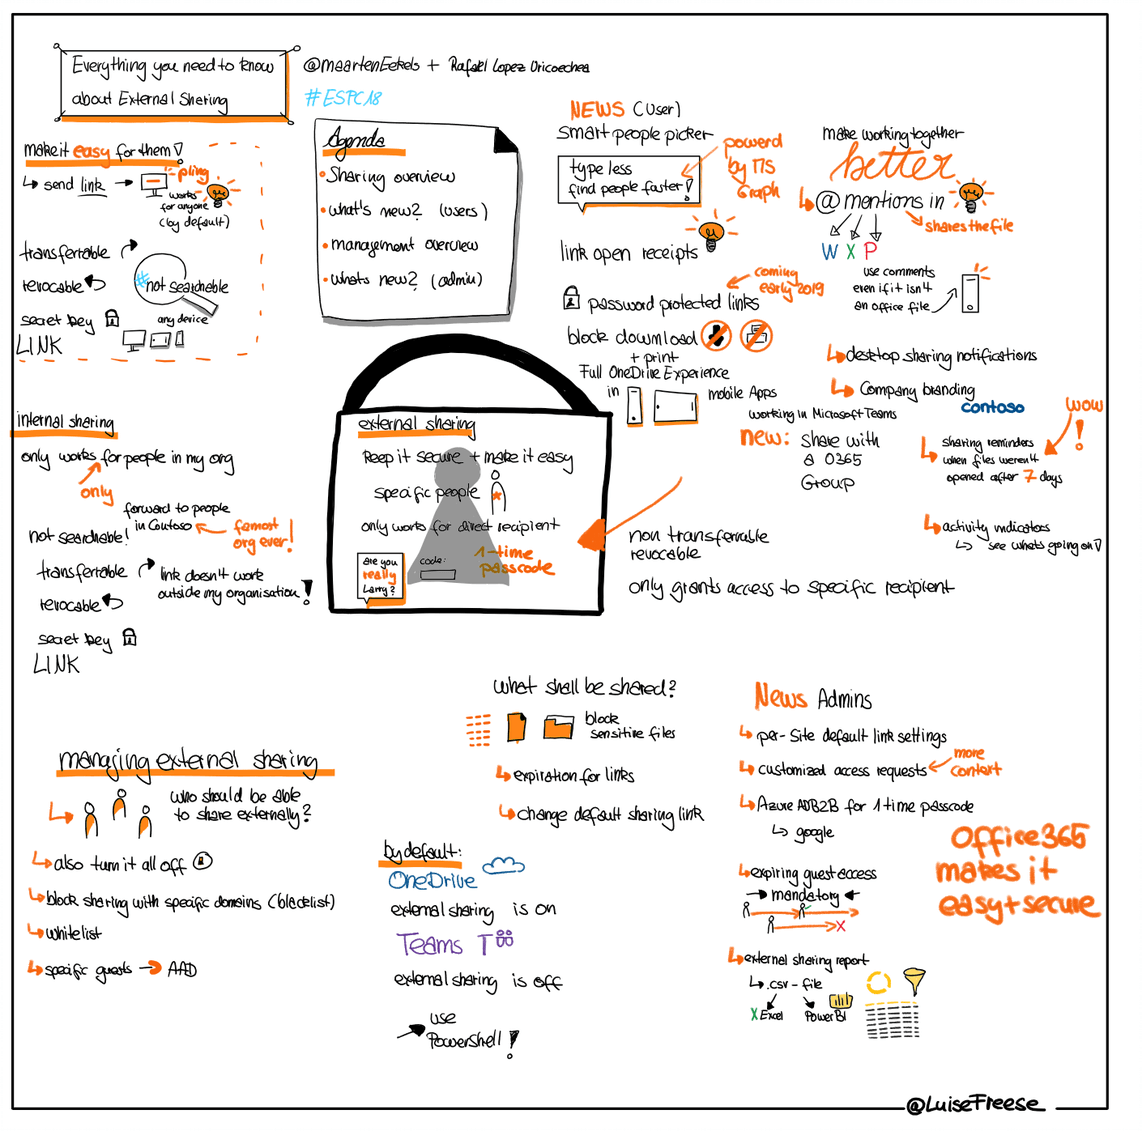 Everything you need to know
about External Sharing
@maartenEekels + Rafael Lopez Uricoechea
#ESPC18
make it easy for them!
send link
pling
works
for anyone
(by default)
transferrable
revocable
#not searchable
secret key
any device
LINK
Agenda
Sharing overview
what's new? (users)
management overview
whats new? (admin)
NEWS (User)
smart people picker
type less
find people faster!
powerd
by MS
Graph
link open receipts
coming
early 2019
password protected links
block download
+ print
Full OneDrive Experience
in
mobile Apps
make working together
better
@mentions in
shares the file
W X P
use comments
even if it isn't
an office file
desktop sharing notifications
Company branding
contoso
working in Microsoft Teams
new: share with
a O365
Group
wow
!
sharing reminders
when files weren't
opened after 7 days
activity indicators
see what's going on!
internal sharing
only works for people in my org
only
forward to people
in Contoso
famost
org ever!
not searchable!
transferrable
link doesn't work
outside my organisation!
revocable
secret key
LINK
external sharing
Keep it secure + make it easy
specific people
only works for direct recipient
are you
really
Larry?
code:
1-time
passcode
non transferrable
revocable
only grants access to specific recipient
managing external sharing
who should be able
to share externally?
also turn it all off
block sharing with specific domains (blacklist)
whitelist
specific guests → AAD
what shall be shared?
block
sensitive files
expiration for links
change default sharing link
by default:
OneDrive
external sharing is on
Teams T
external sharing is off
use
PowerShell!
News Admins
per-Site default link settings
customized access requests
more
context
Azure ADB2B for 1 time passcode
google
expiring guest access
mandatory
X
external sharing report
.csv-file
X Excel
PowerBI
Office 365
makes it
easy+secure
@LuiseFreese